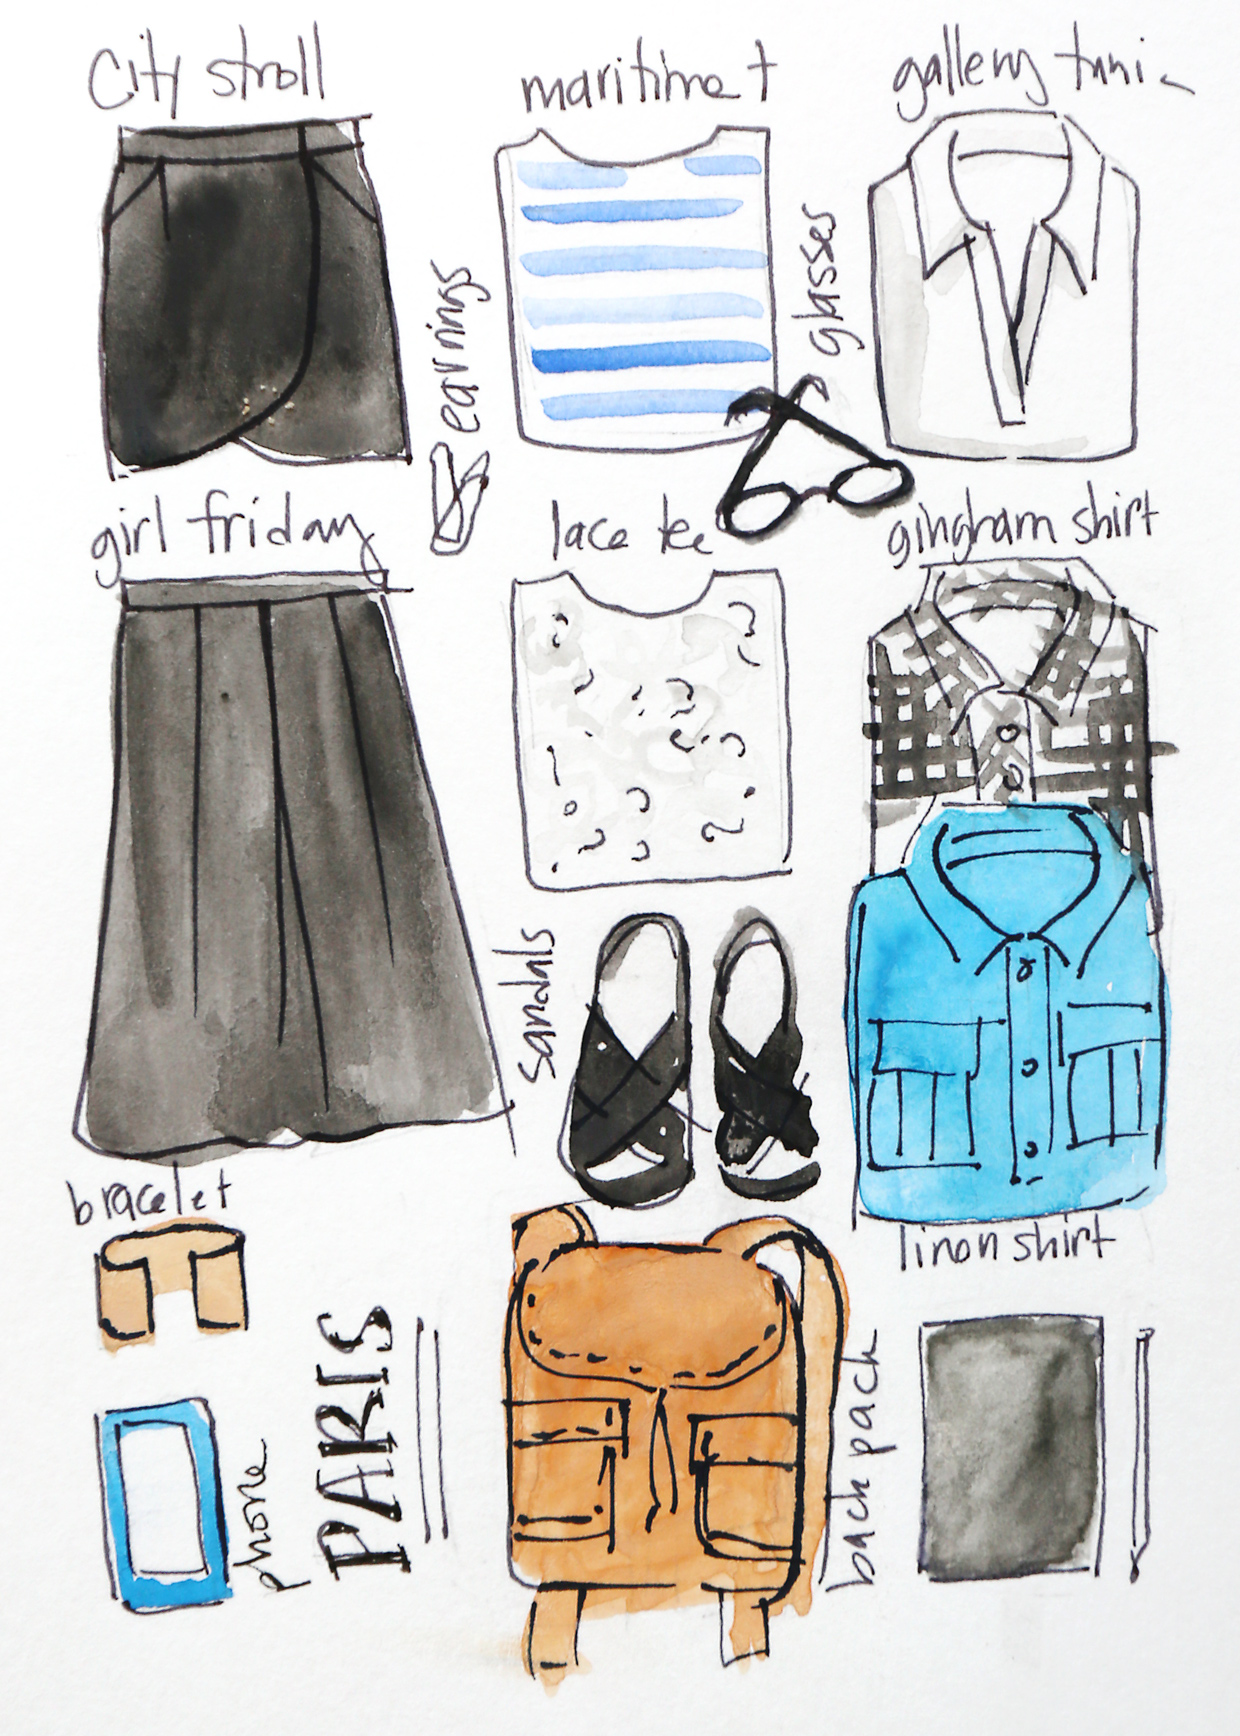 City stroll
maritime t
gallery tunic
earrings
glasses
girl friday
lace tee
gingham shirt
sandals
bracelet
linen shirt
phone
PARIS
backpack